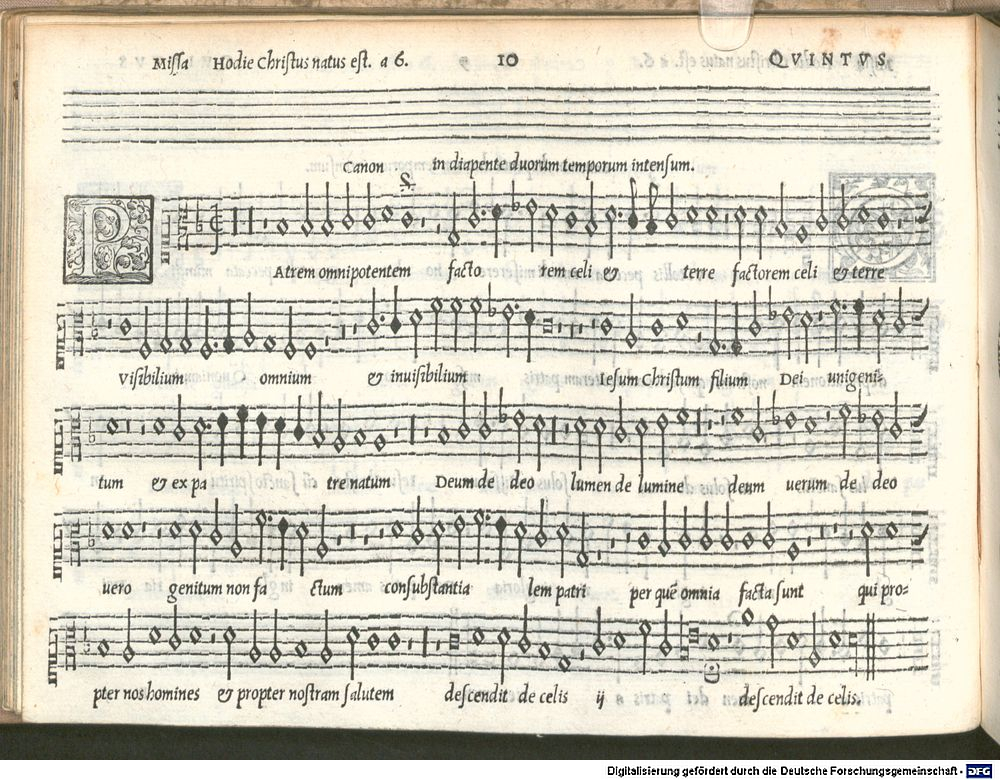 Miſſa Hodie Chriſtus natus eſt. a 6. 10 QVINTVS
Canon in diapente duorum temporum intenſum.
PAtrem omnipotentem facto rem celi & terre factorem celi & terre
viſibilium omnium & inuiſibilium Ieſum Chriſtum filium Dei unigeni-
tum & ex pa tre natum Deum de deo lumen de lumine deum uerum de deo
uero genitum non fa ctum conſubſtantia lem patri per quẽ omnia facta ſunt qui pro-
pter nos homines & propter noſtram ſalutem deſcendit de celis ij deſcendit de celis.
Digitalisierung gefördert durch die Deutsche Forschungsgemeinschaft - DFG